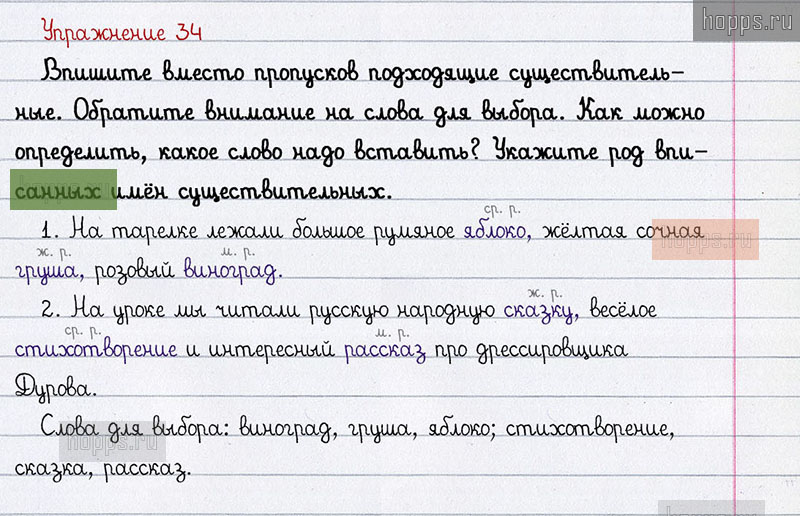 hopps.ru
Упражнение 34
Впишите вместо пропусков подходящие существитель-
ные. Обратите внимание на слова для выбора. Как можно
определить, какое слово надо вставить? Укажите род впи-
санных имён существительных.
ср. р.
1. На тарелке лежали большое румяное яблоко, жёлтая сочная
hopps.ru
ж. р. м. р.
груша, розовый виноград.
ж. р.
2. На уроке мы читали русскую народную сказку, весёлое
ср. р. м. р.
стихотворение и интересный рассказ про дрессировщика
Дурова.
Слова для выбора: виноград, груша, яблоко; стихотворение,
hopps.ru
сказка, рассказ.